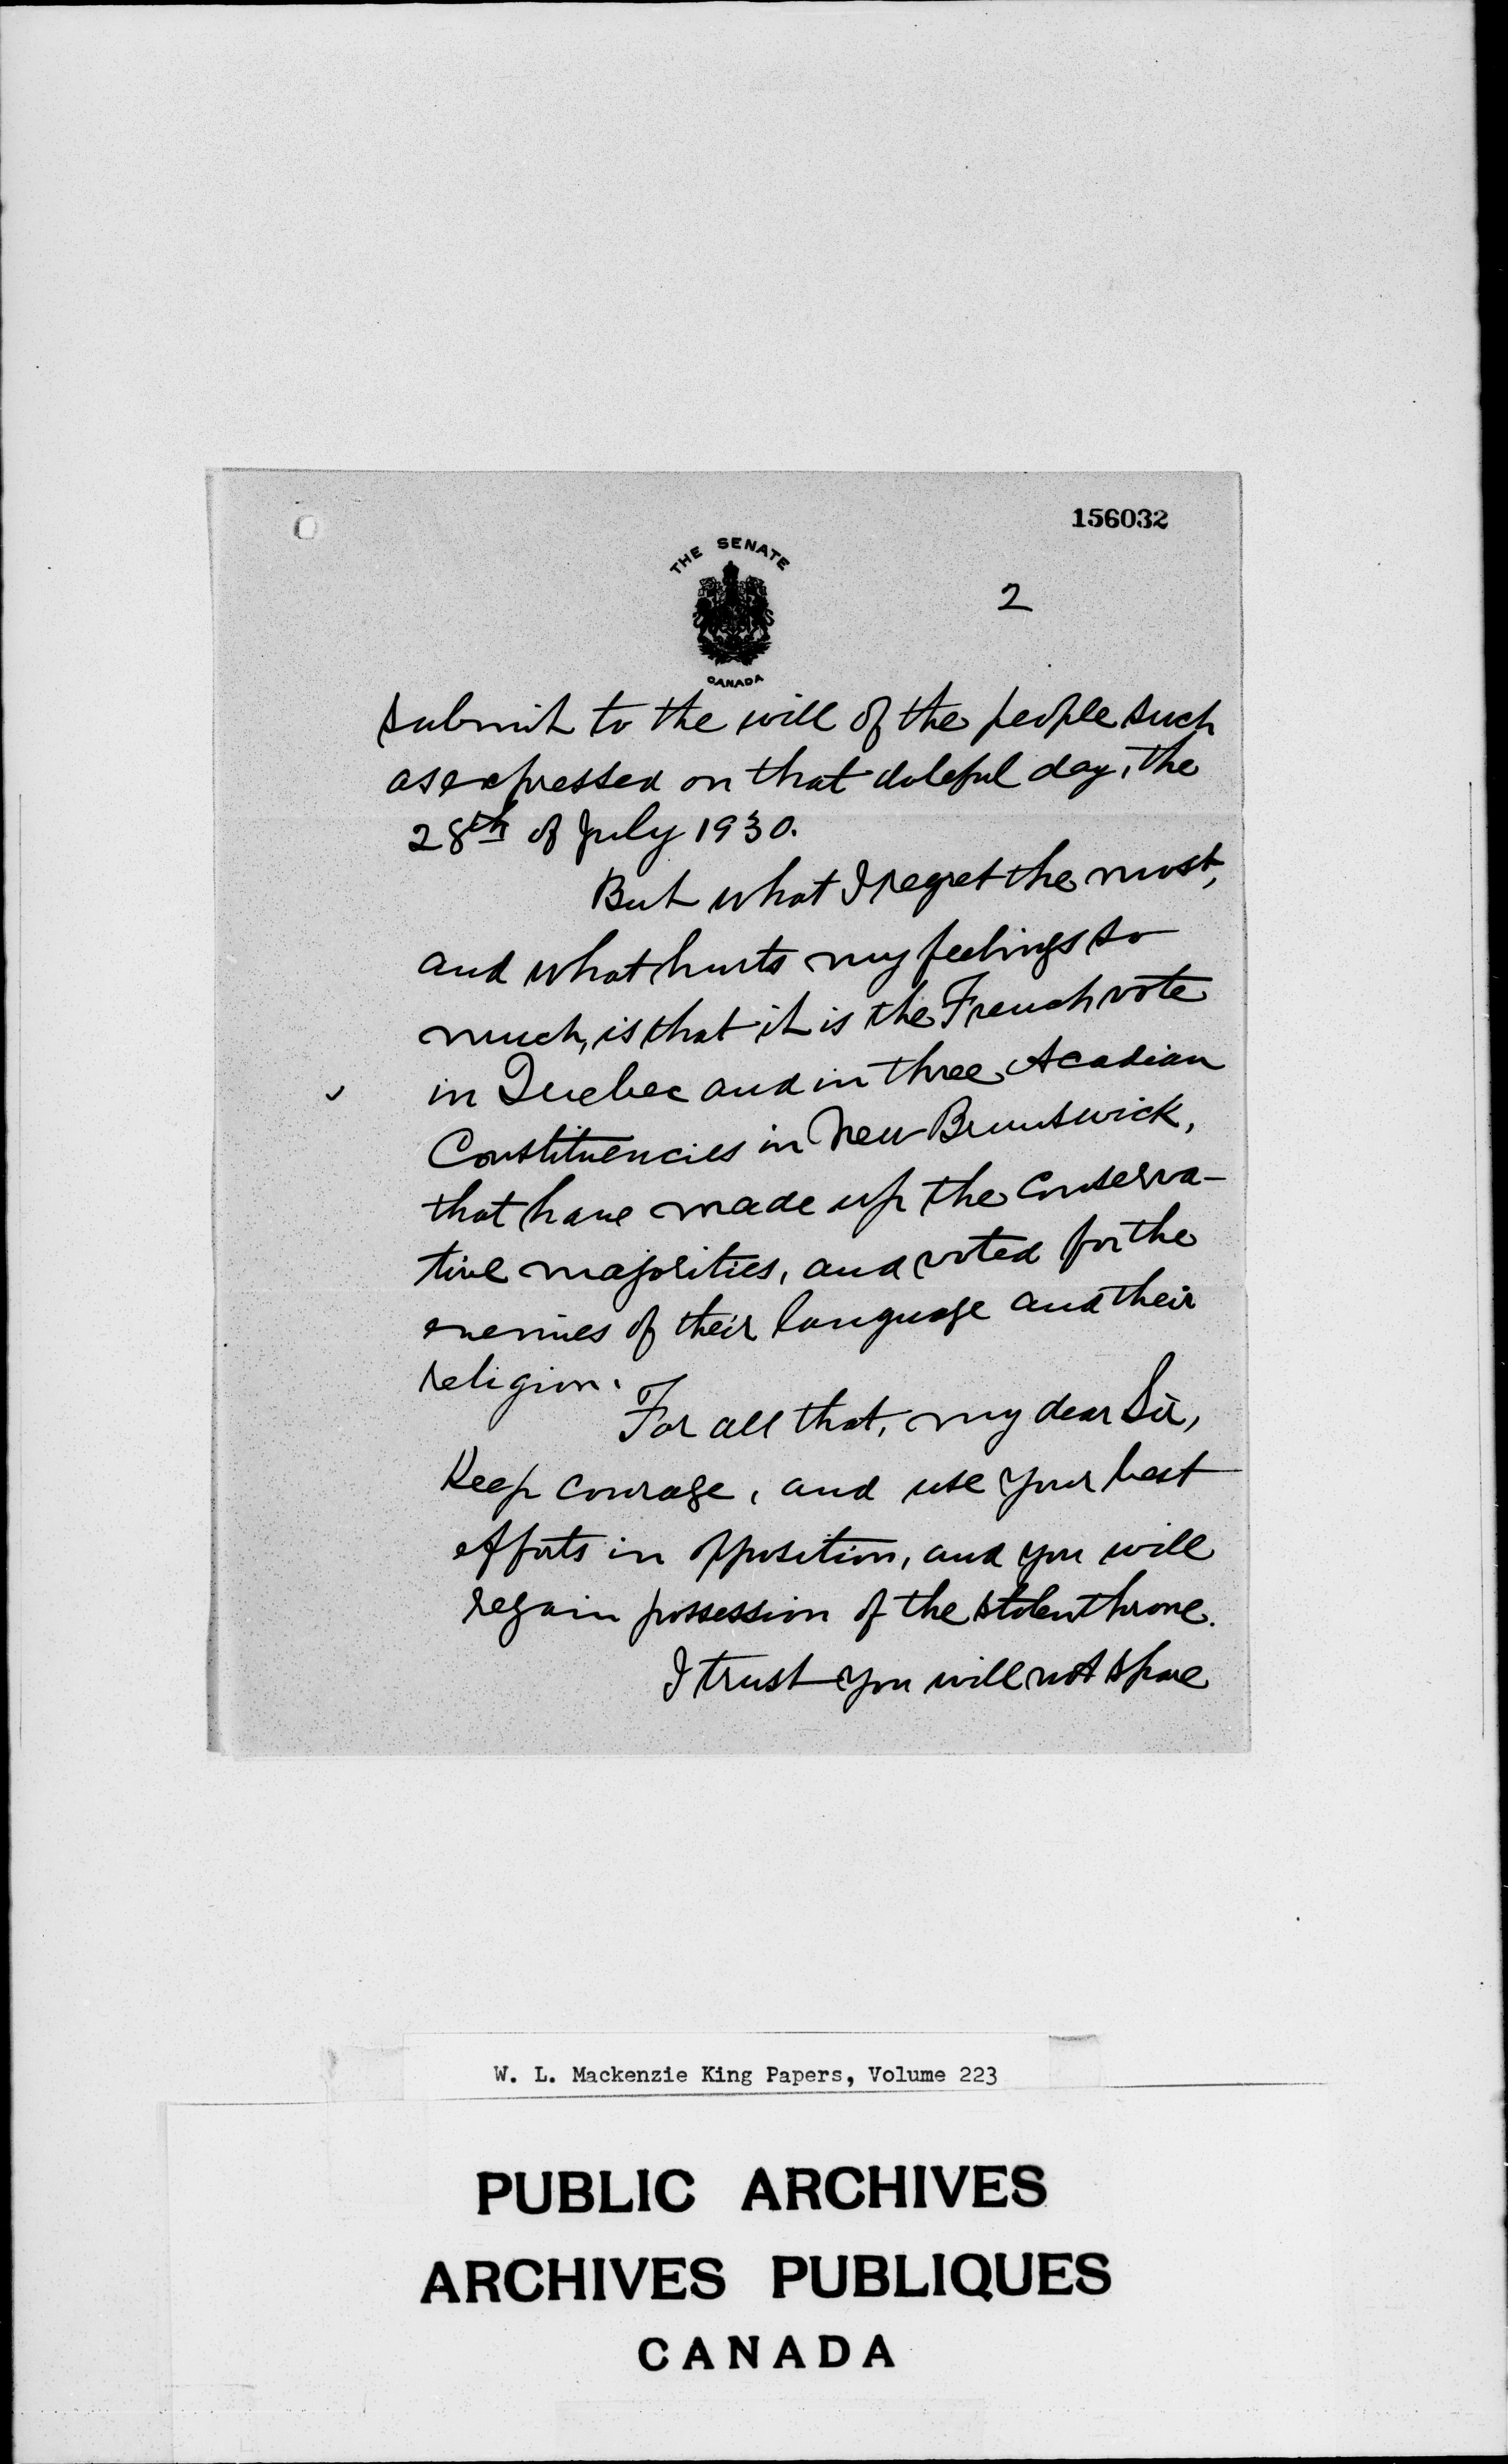 156032
THE SENATE
CANADA
2
submit to the will of the people such
as expressed on that doleful day, the
28th of July 1930.
But what I regret the most,
and what hurts my feelings so
much, is that it is the French vote
in Quebec and in three Acadian
Constituencies in New Brunswick,
that have made up the Conserva-
tive majorities, and voted for the
enemies of their language and their
religion.
For all that, my dear Sir,
Keep courage, and use your best
efforts in opposition, and you will
regain possession of the stolen throne.
I trust you will not spare
W. L. Mackenzie King Papers, Volume 223
PUBLIC ARCHIVES
ARCHIVES PUBLIQUES
CANADA